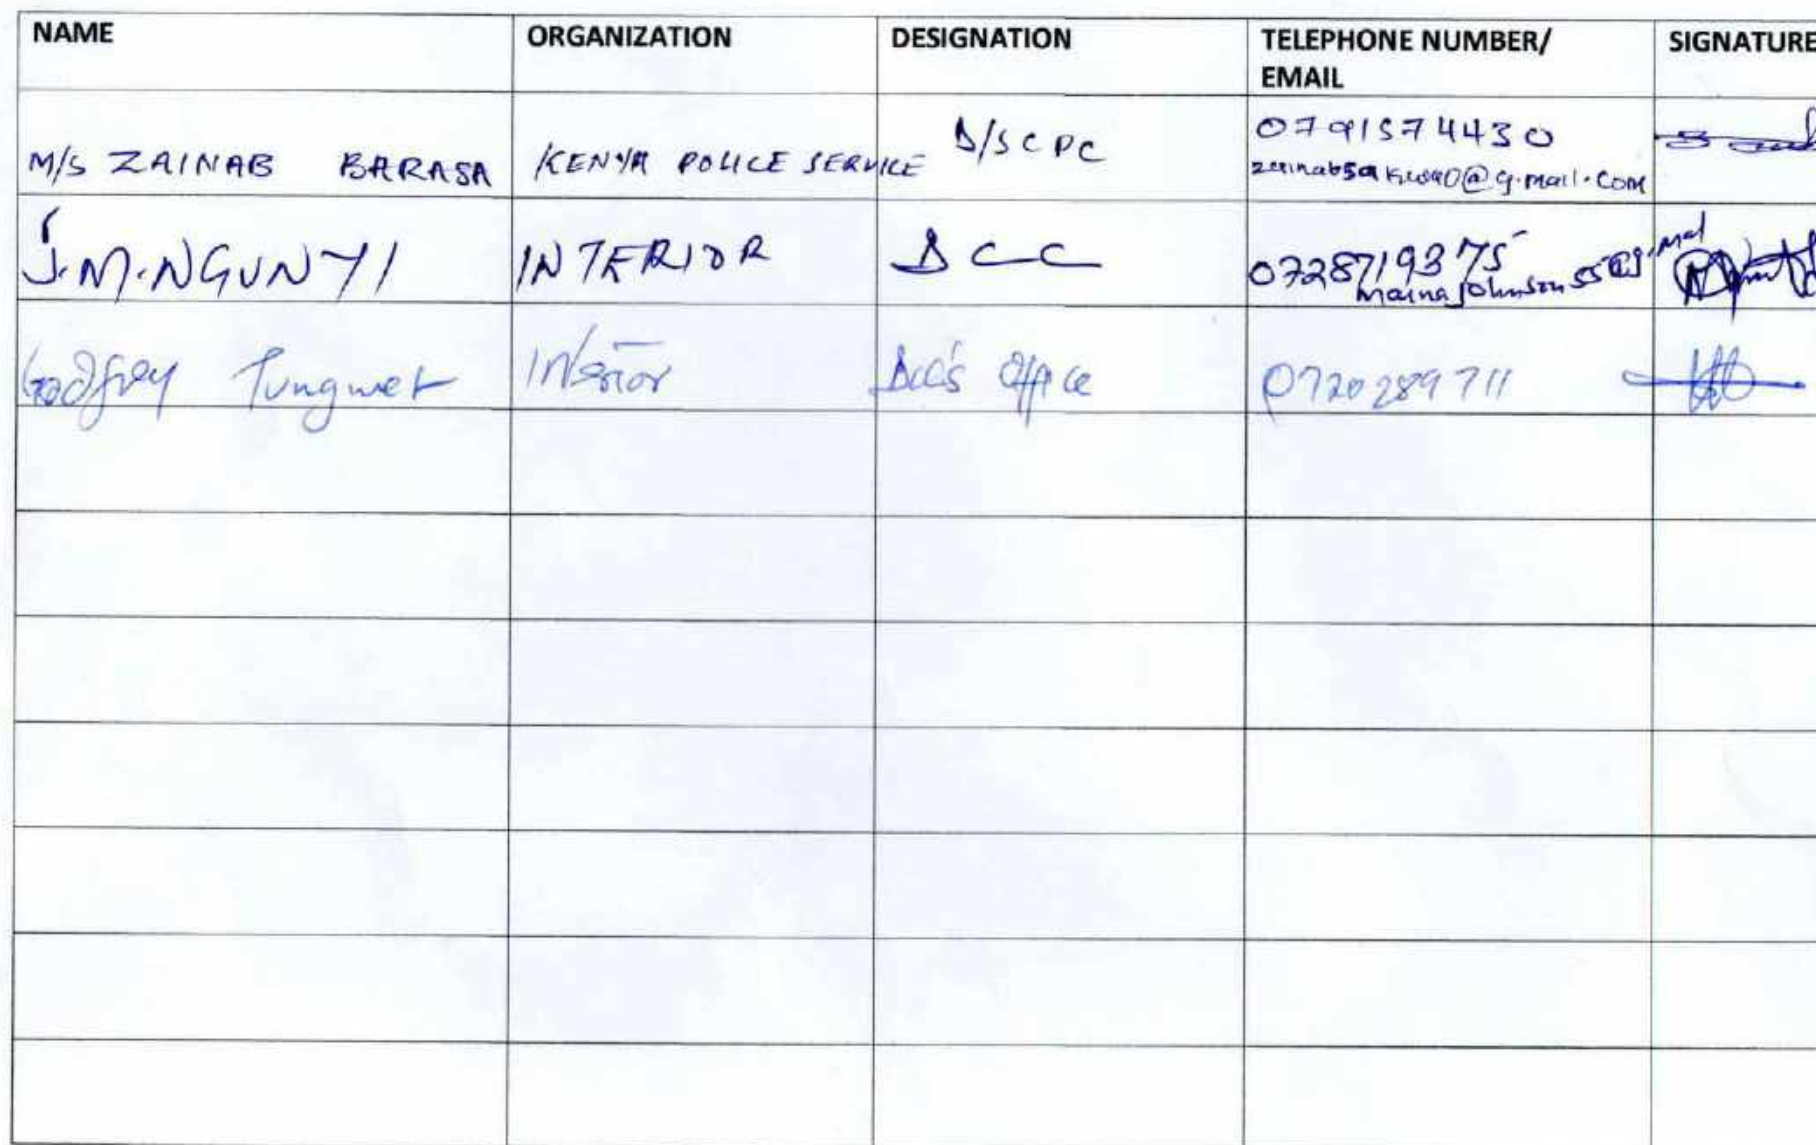 NAME ORGANIZATION DESIGNATION TELEPHONE NUMBER/ SIGNATURE
EMAIL
M/S ZAINAB BARASA KENYA POLICE SERVICE D/SCPC 0791574430
J.M.NGUNYI INTERIOR DCC 0728719375
mainajohnson55@g.mail
Godfrey Tungwet Interior DCC's Office 0720289711